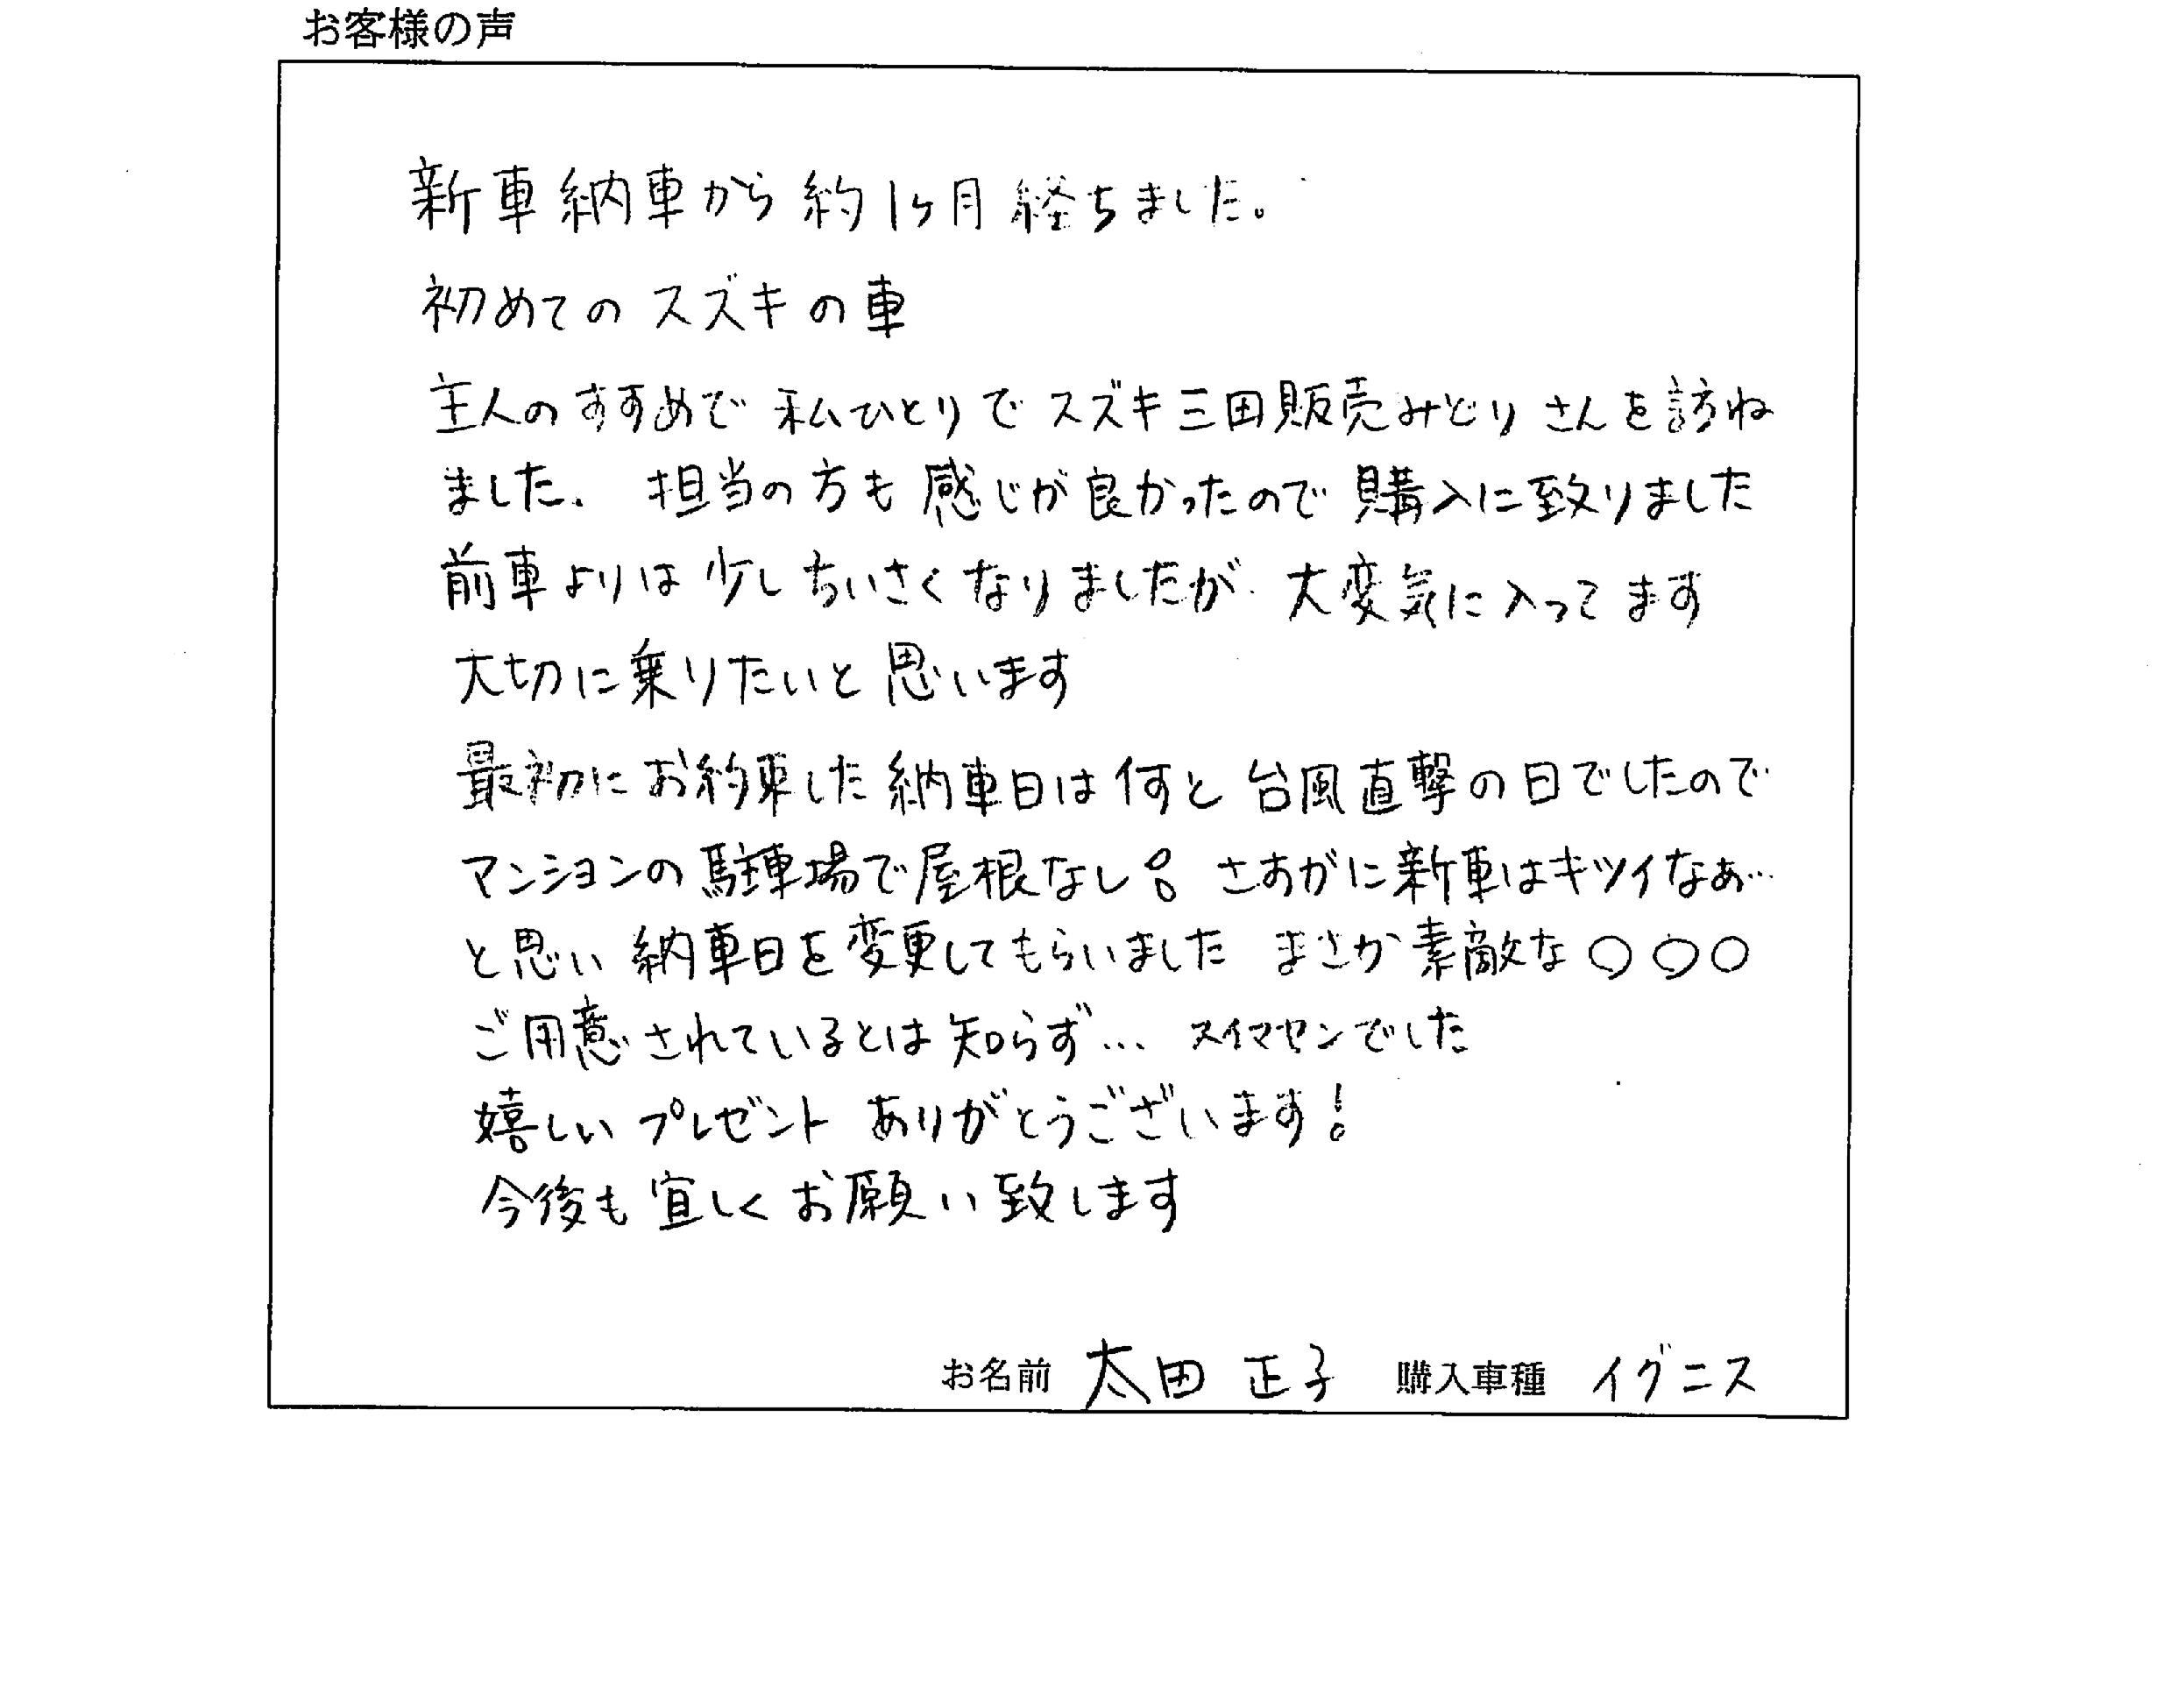 お客様の声
新車納車から約1ヶ月経ちました。
初めてのスズキの車
主人のすすめで 私ひとりで スズキ三田販売みどりさんを訪ね
ました. 担当の方も感じが良かったので購入に致りました
前車よりは少しちいさくなりましたが 大変気に入ってます
大切に乗りたいと思います
最初にお約束した納車日は何と台風直撃の日でしたので
マンションの駐車場で屋根なし! さすがに新車はキツイなぁ…
と思い納車日を変更してもらいました まさか素敵な○○○
ご用意されているとは知らず… スイマセンでした
嬉しいプレゼント ありがとうございます!
今後も宜しくお願い致します
お名前 太田 正子 購入車種 イグニス